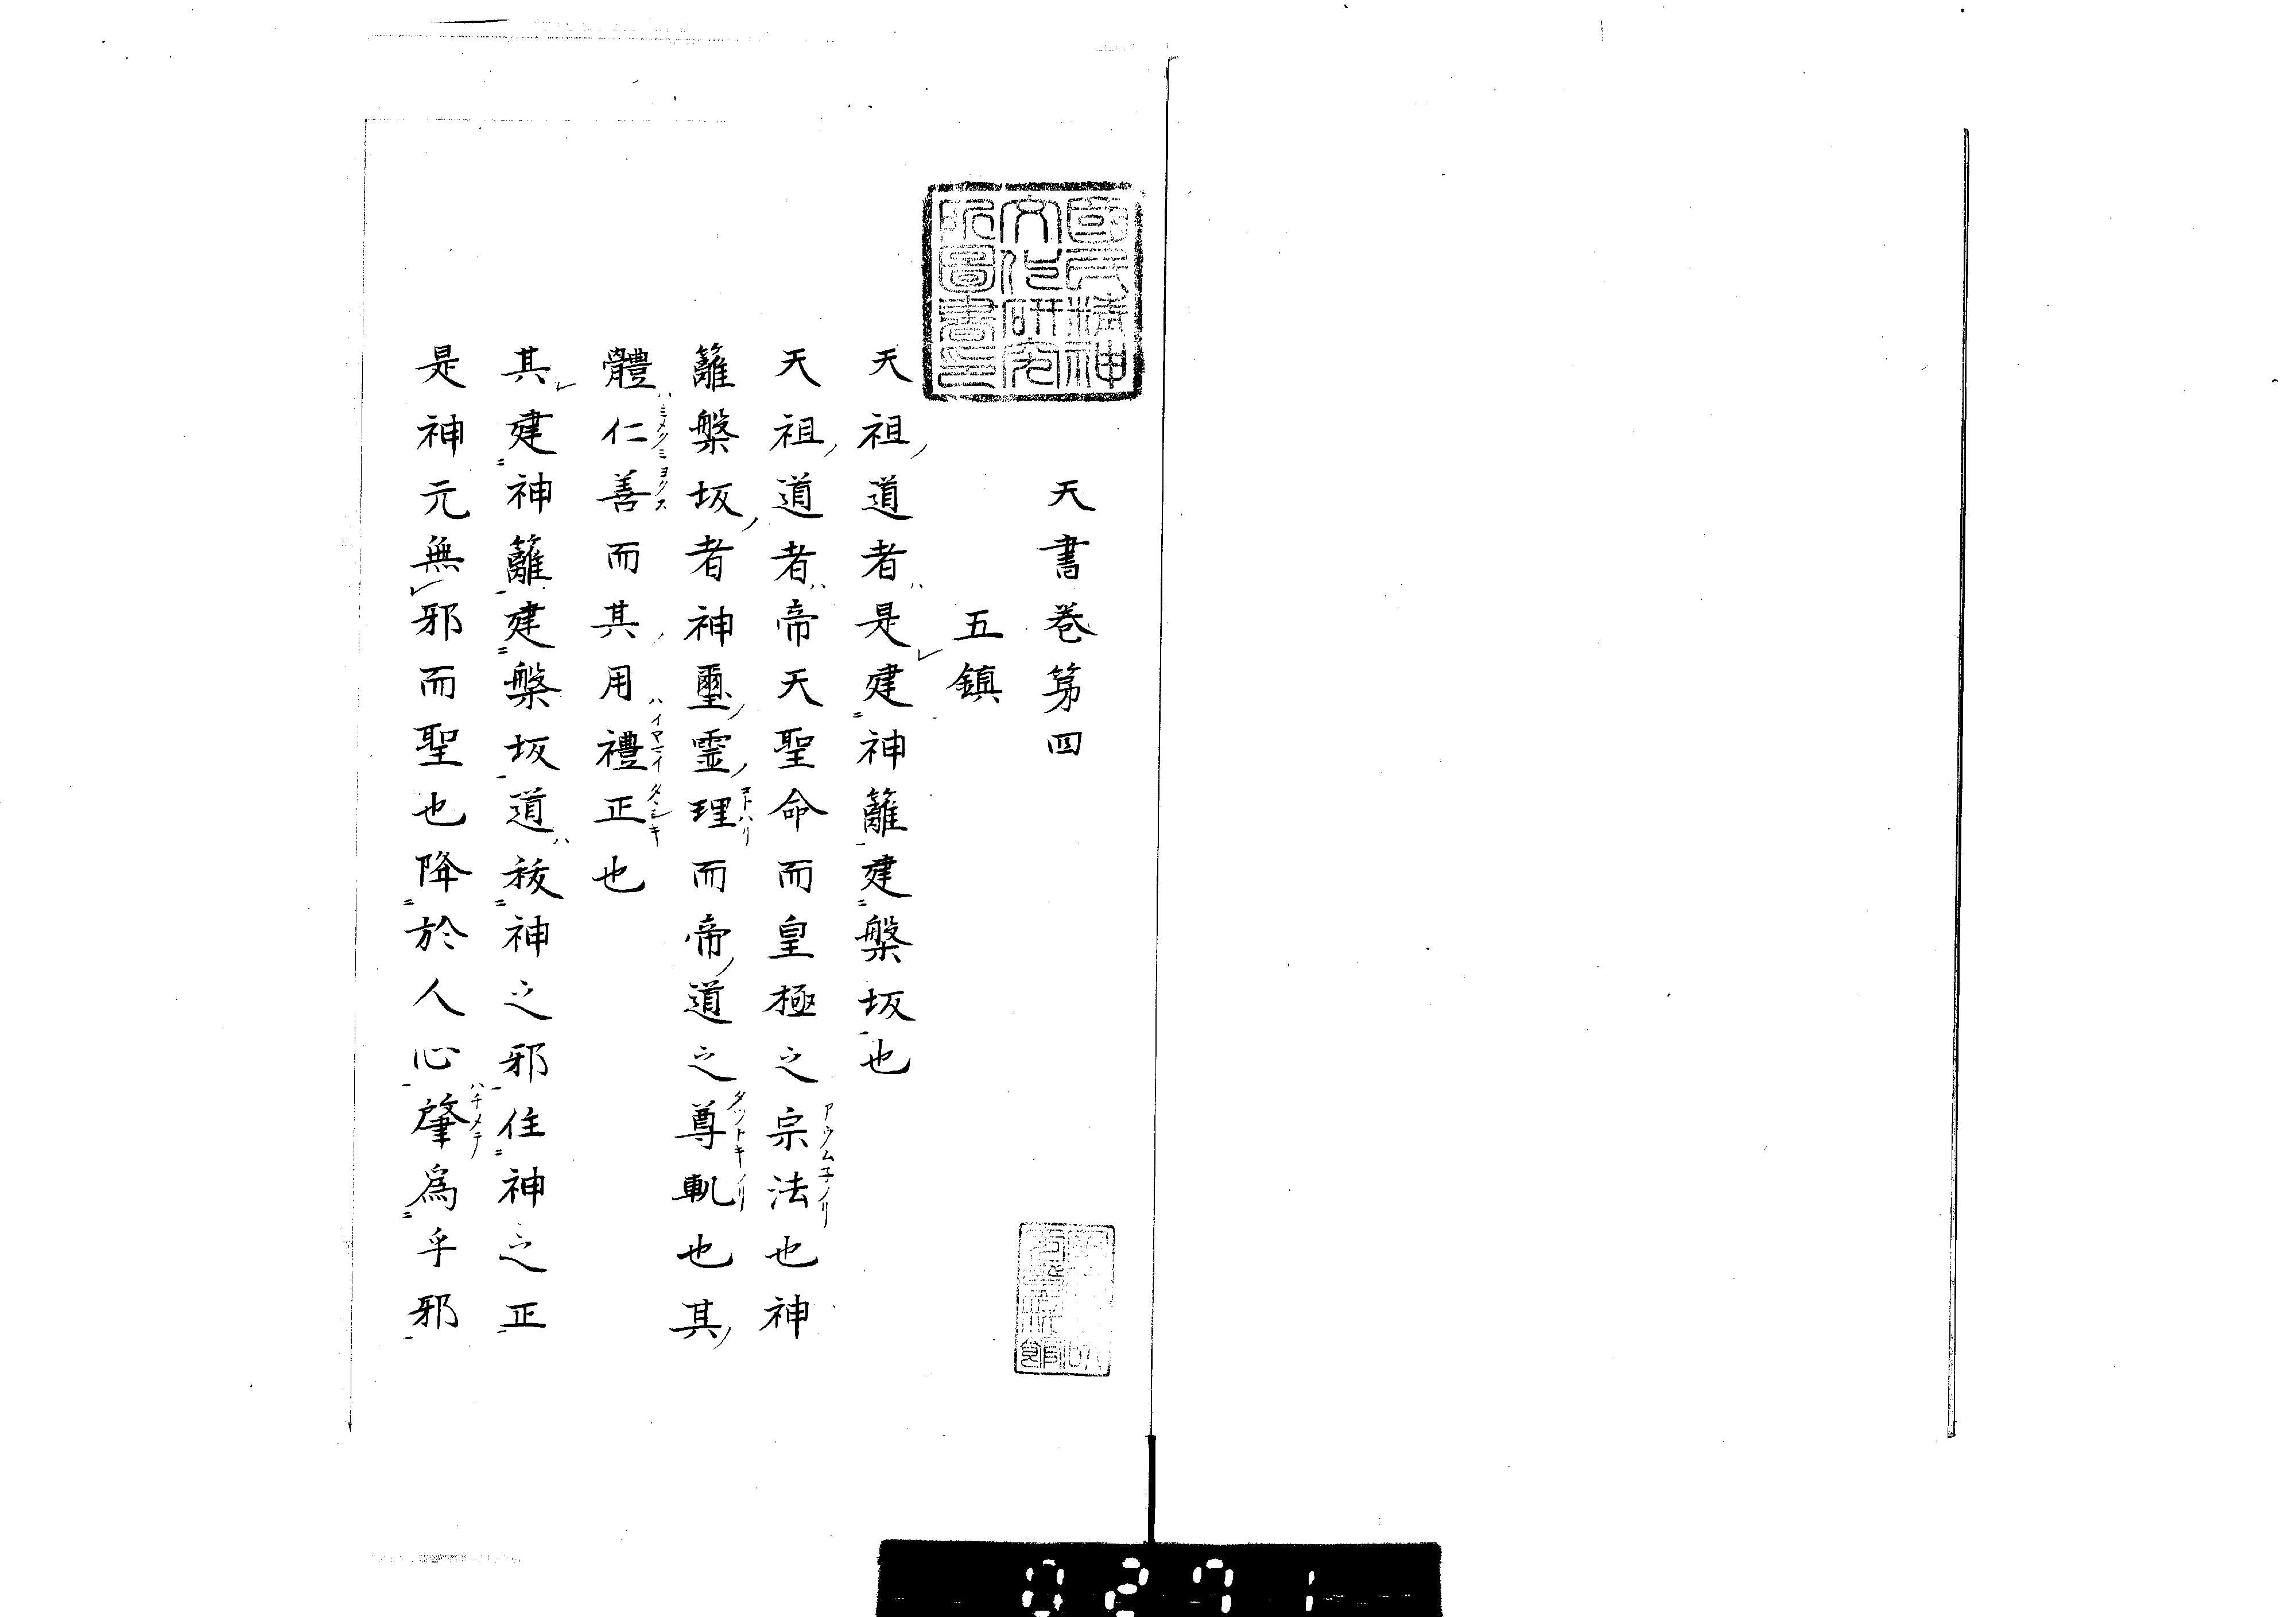 國民精神
文化研究
所圖書印
天書巻第四
五鎮
天祖道者是建神籬建槃坂也
天祖道者帝天聖命而皇極之宗法也神
籬槃坂者神璽靈理而帝道之尊軌也其
體仁善而其用禮正也
其建神籬建槃坂道祓神之邪住神之正
是神元無邪而聖也降於人心肇爲乎邪
0271